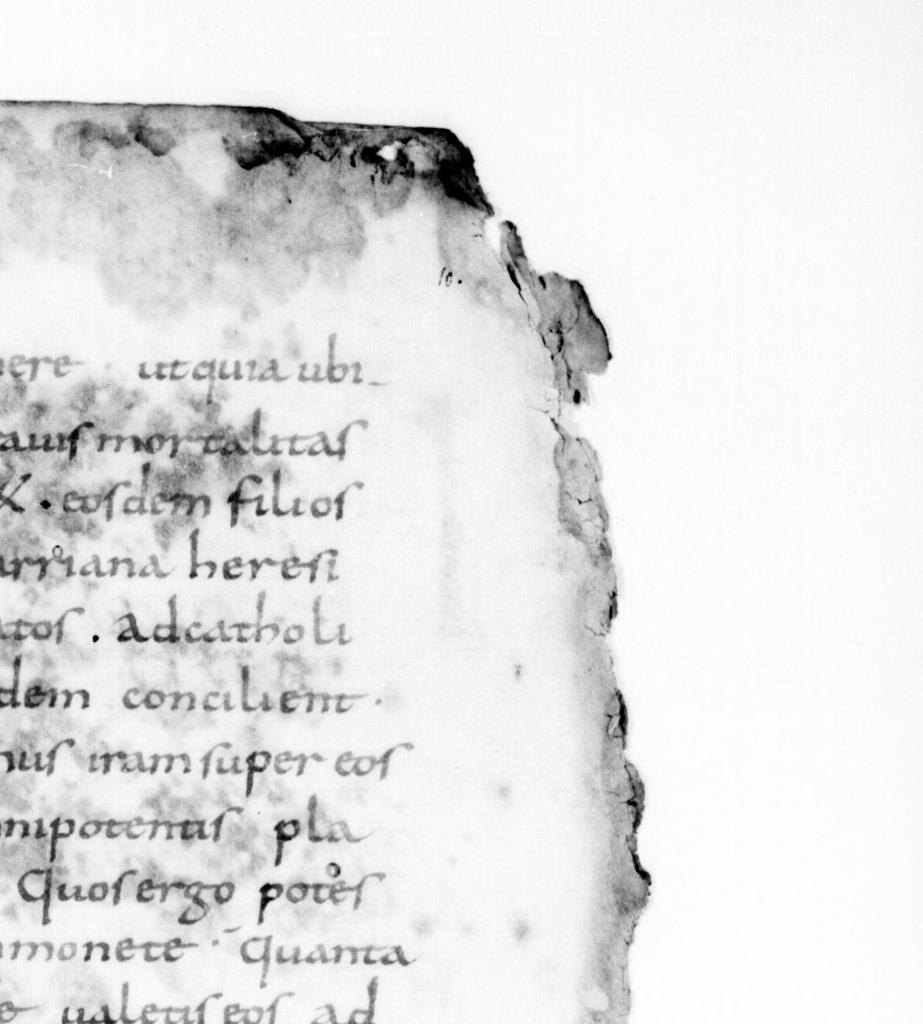 10.
ere · utquia ubi
auis mortalitas
&. eosdem filios
arriana heresi
atos. Adcatholi
dem concilient·
nus iram super eos
nipotentis pla
Quos ergo potes
monete· Quanta
ualetis eos ad